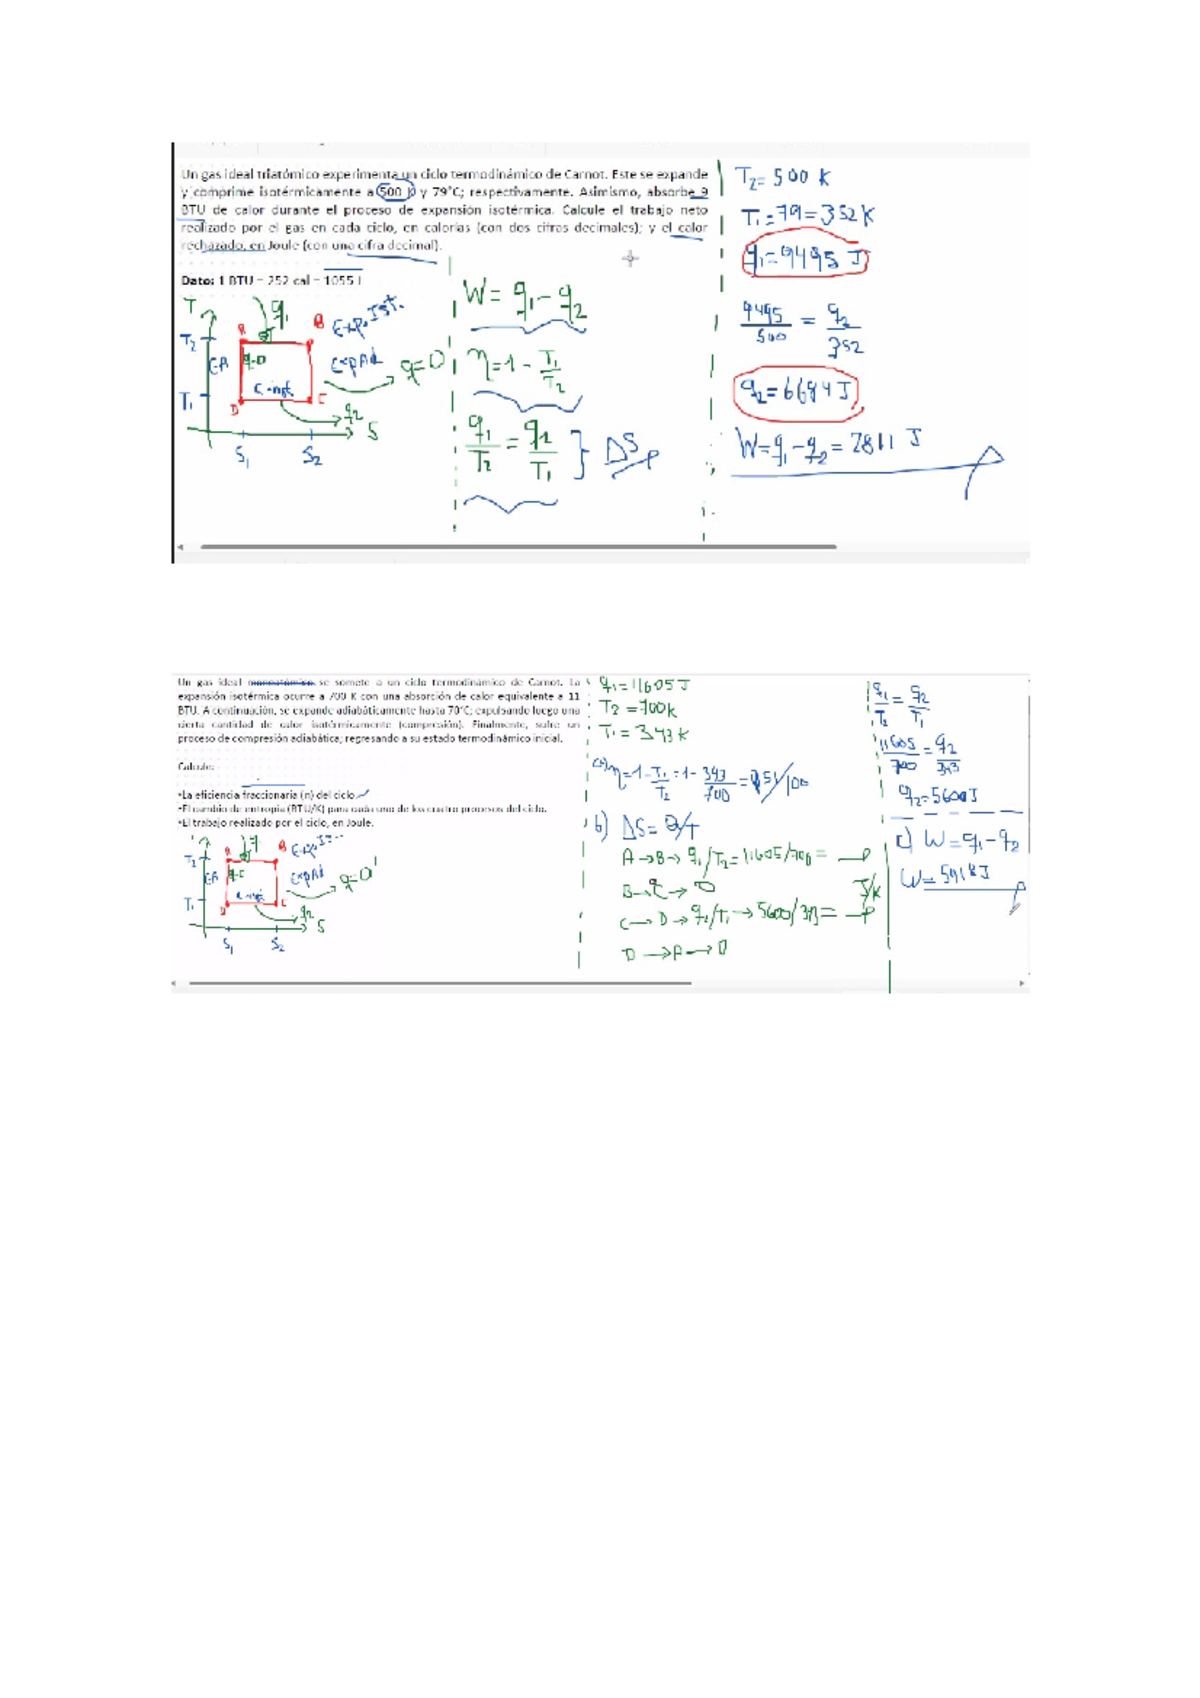 Un gas ideal triatómico experimenta un ciclo termodinámico de Carnot. Este se expande
y comprime isotérmicamente a 500 K y 79°C; respectivamente. Asimismo, absorbe 9
BTU de calor durante el proceso de expansión isotérmica. Calcule el trabajo neto
realizado por el gas en cada ciclo, en calorías (con dos cifras decimales); y el calor
rechazado, en Joule (con una cifra decimal).
Dato: 1 BTU = 252 cal = 1055 J
T
q₁
A
B
Exp. Ist.
T₂
EA
q=0
ExpAd
q=0
T₁
D
C
q₂
S
S₁
S₂
W = q₁ - q₂
η = 1 - T₁/T₂
q₁/T₂ = q2/T₁ } ΔS
T₂= 500 K
T₁=79=352K
q₁=9495 J
9495/500 = q₂/352
q₂=6684 J
W=q₁-q₂=2811 J
Un gas ideal monoatómico se somete a un ciclo termodinámico de Carnot. La
expansión isotérmica ocurre a 700 K con una absorción de calor equivalente a 11
BTU. A continuación, se expande adiabáticamente hasta 70°C; expulsando luego una
cierta cantidad de calor isotérmicamente (compresión). Finalmente, sufre un
proceso de compresión adiabática; regresando a su estado termodinámico inicial.
Calcule:
•La eficiencia fraccionaria (n) del ciclo.
•El cambio de entropía (BTU/K) para cada uno de los cuatro procesos del ciclo.
•El trabajo realizado por el ciclo, en Joule.
T₂
A
B
EA
ExpAd
q=0
T₁
D
C
q₂
S
S₁
S₂
q₁=11605 J
T₂ =700K
T₁ = 343 K
η=1-T₁/T₂=1-343/700=0,51/100
b) ΔS= Q/T
A→B→ q₁/T₂=11605/700=
B→C→ 0
J/K
C→D→q₂/T₁→5600/343=
D→A→0
q₁/T₂=q₂/T₁
11605/700=q₂/343
q₂=5600J
c) W=q₁-q₂
W=5918J